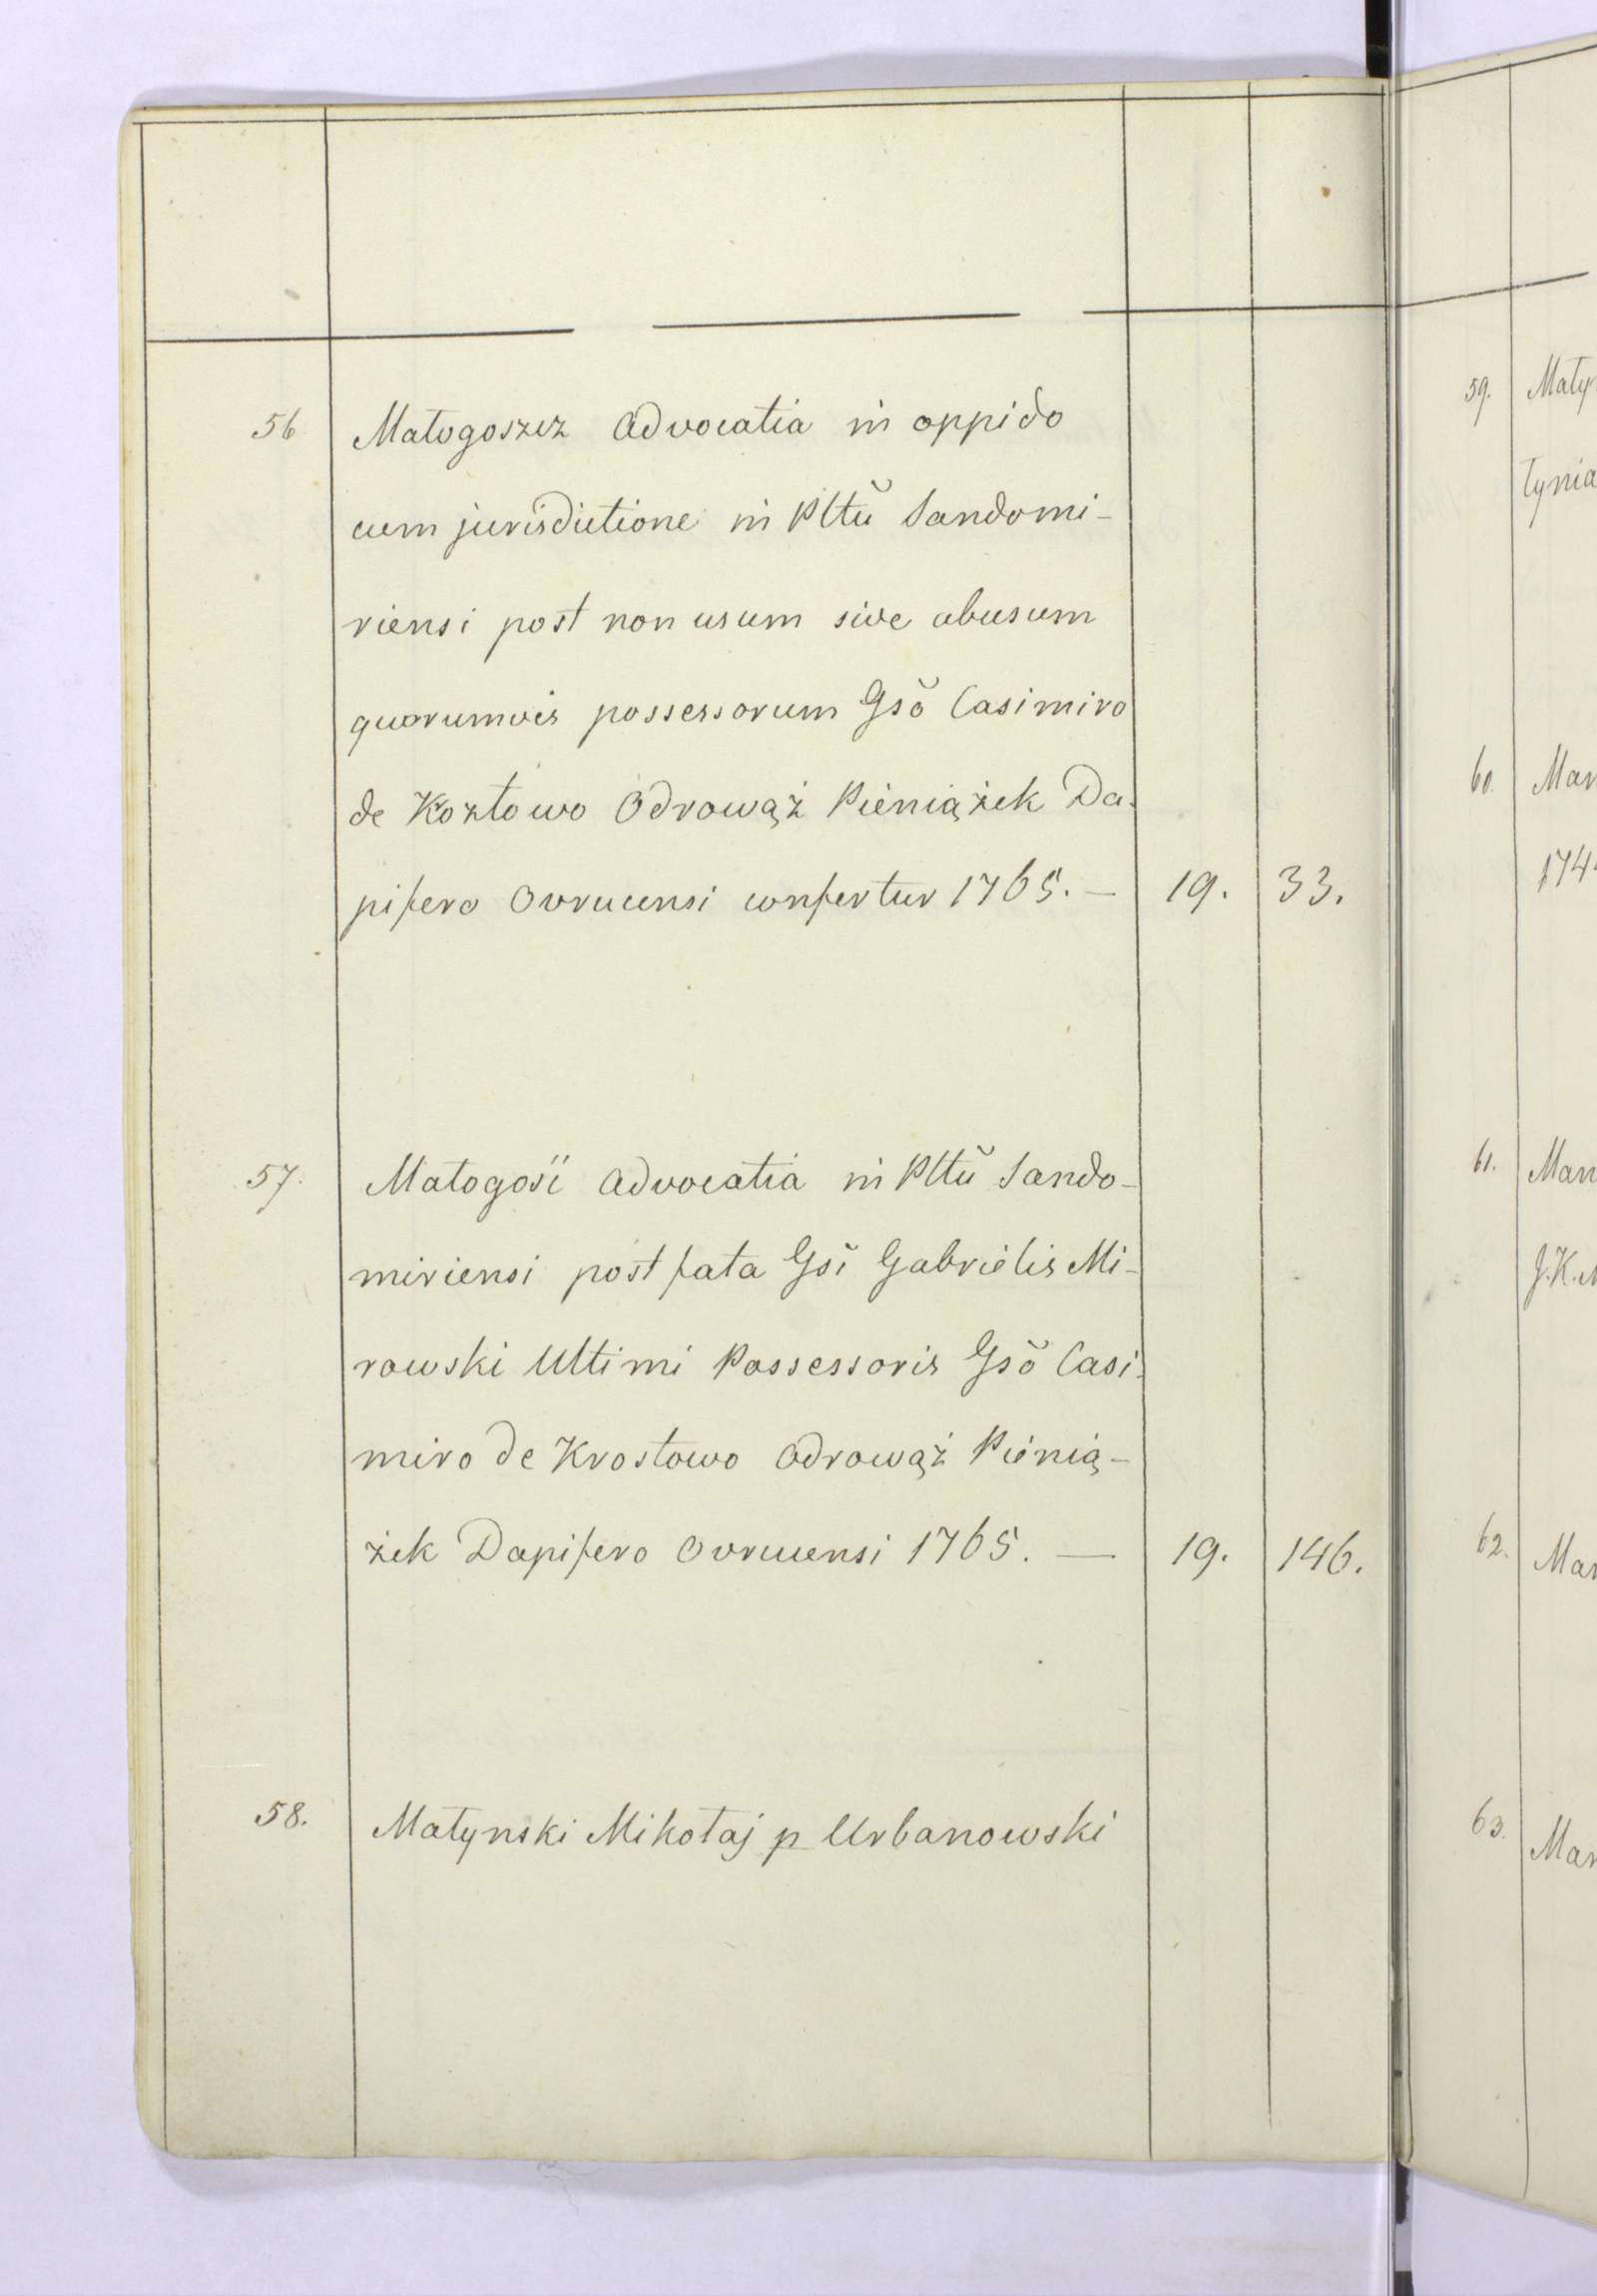 56 Małogoszcz Advocatia in oppido
cum jurisdictione in Pltŭ Sandomi-
riensi post non usum sive abusum
quorumvis possessorum Gsŏ Casimiro
de Kozłowo Odrowąż Pieniążek Da-
pifero Ovrucensi confertur 1765. — 19. 33.
57. Małogosii Advocatia in Pltŭ Sando-
miriensi post fata Gsi Gabrielis Mi-
rowski Ultimi Possessoris Gsŏ Casi-
miro de Krostowo Odrowąż Pienią-
żek Dapifero Ovrucensi 1765. — 19. 146.
58. Małynski Mikołaj p Urbanowski
59. Mały
łynia
60. Mar
174
61. Man
J.K.M
62. Mar
63. Mar